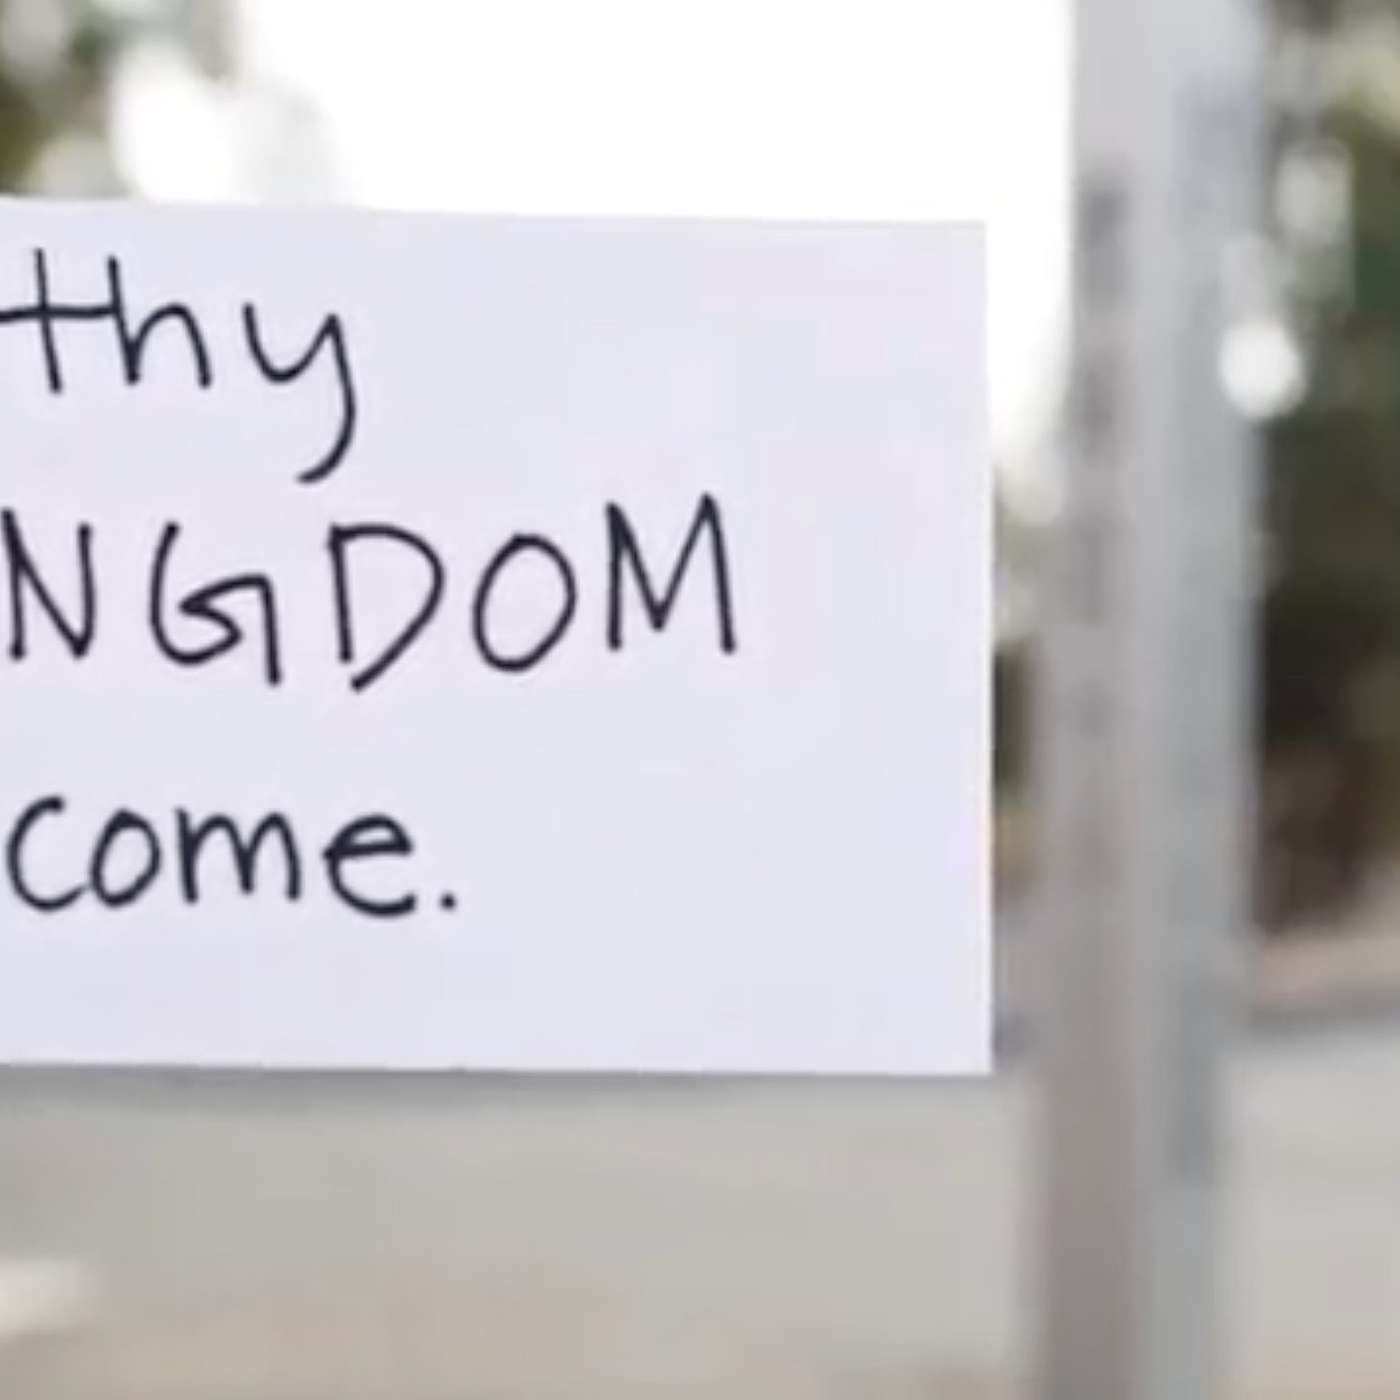 thy
NGDOM
come.